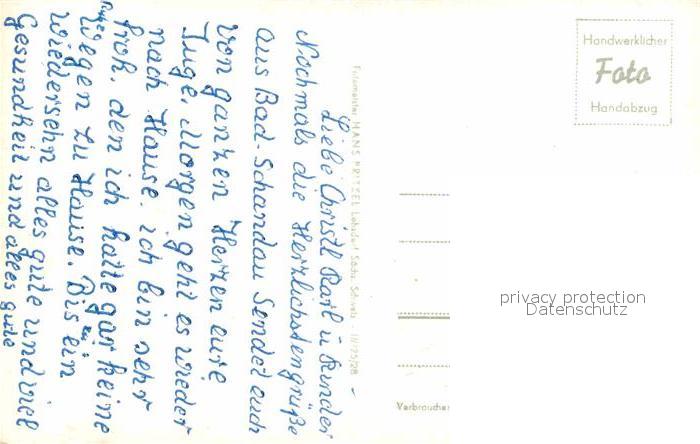 Liebe Christl Karl u Kinder
Nochmals die Herzlichsten grüße
aus Bad-Schandau Sendet euch
von ganzen Herzen eure
Inge. Morgen geht es wieder
nach Hause. ich bin sehr
froh. den ich hatte gar keine
Ruhe wegen zu Hause. Bis ein
wiedersehn alles gute und viel
Gesundheit und alles gute
Fotomeister HANS PRITZEL Lohsdorf Sächs. Schweiz
Handwerklicher
Foto
Handabzug
privacy protection
Datenschutz
Verbraucher